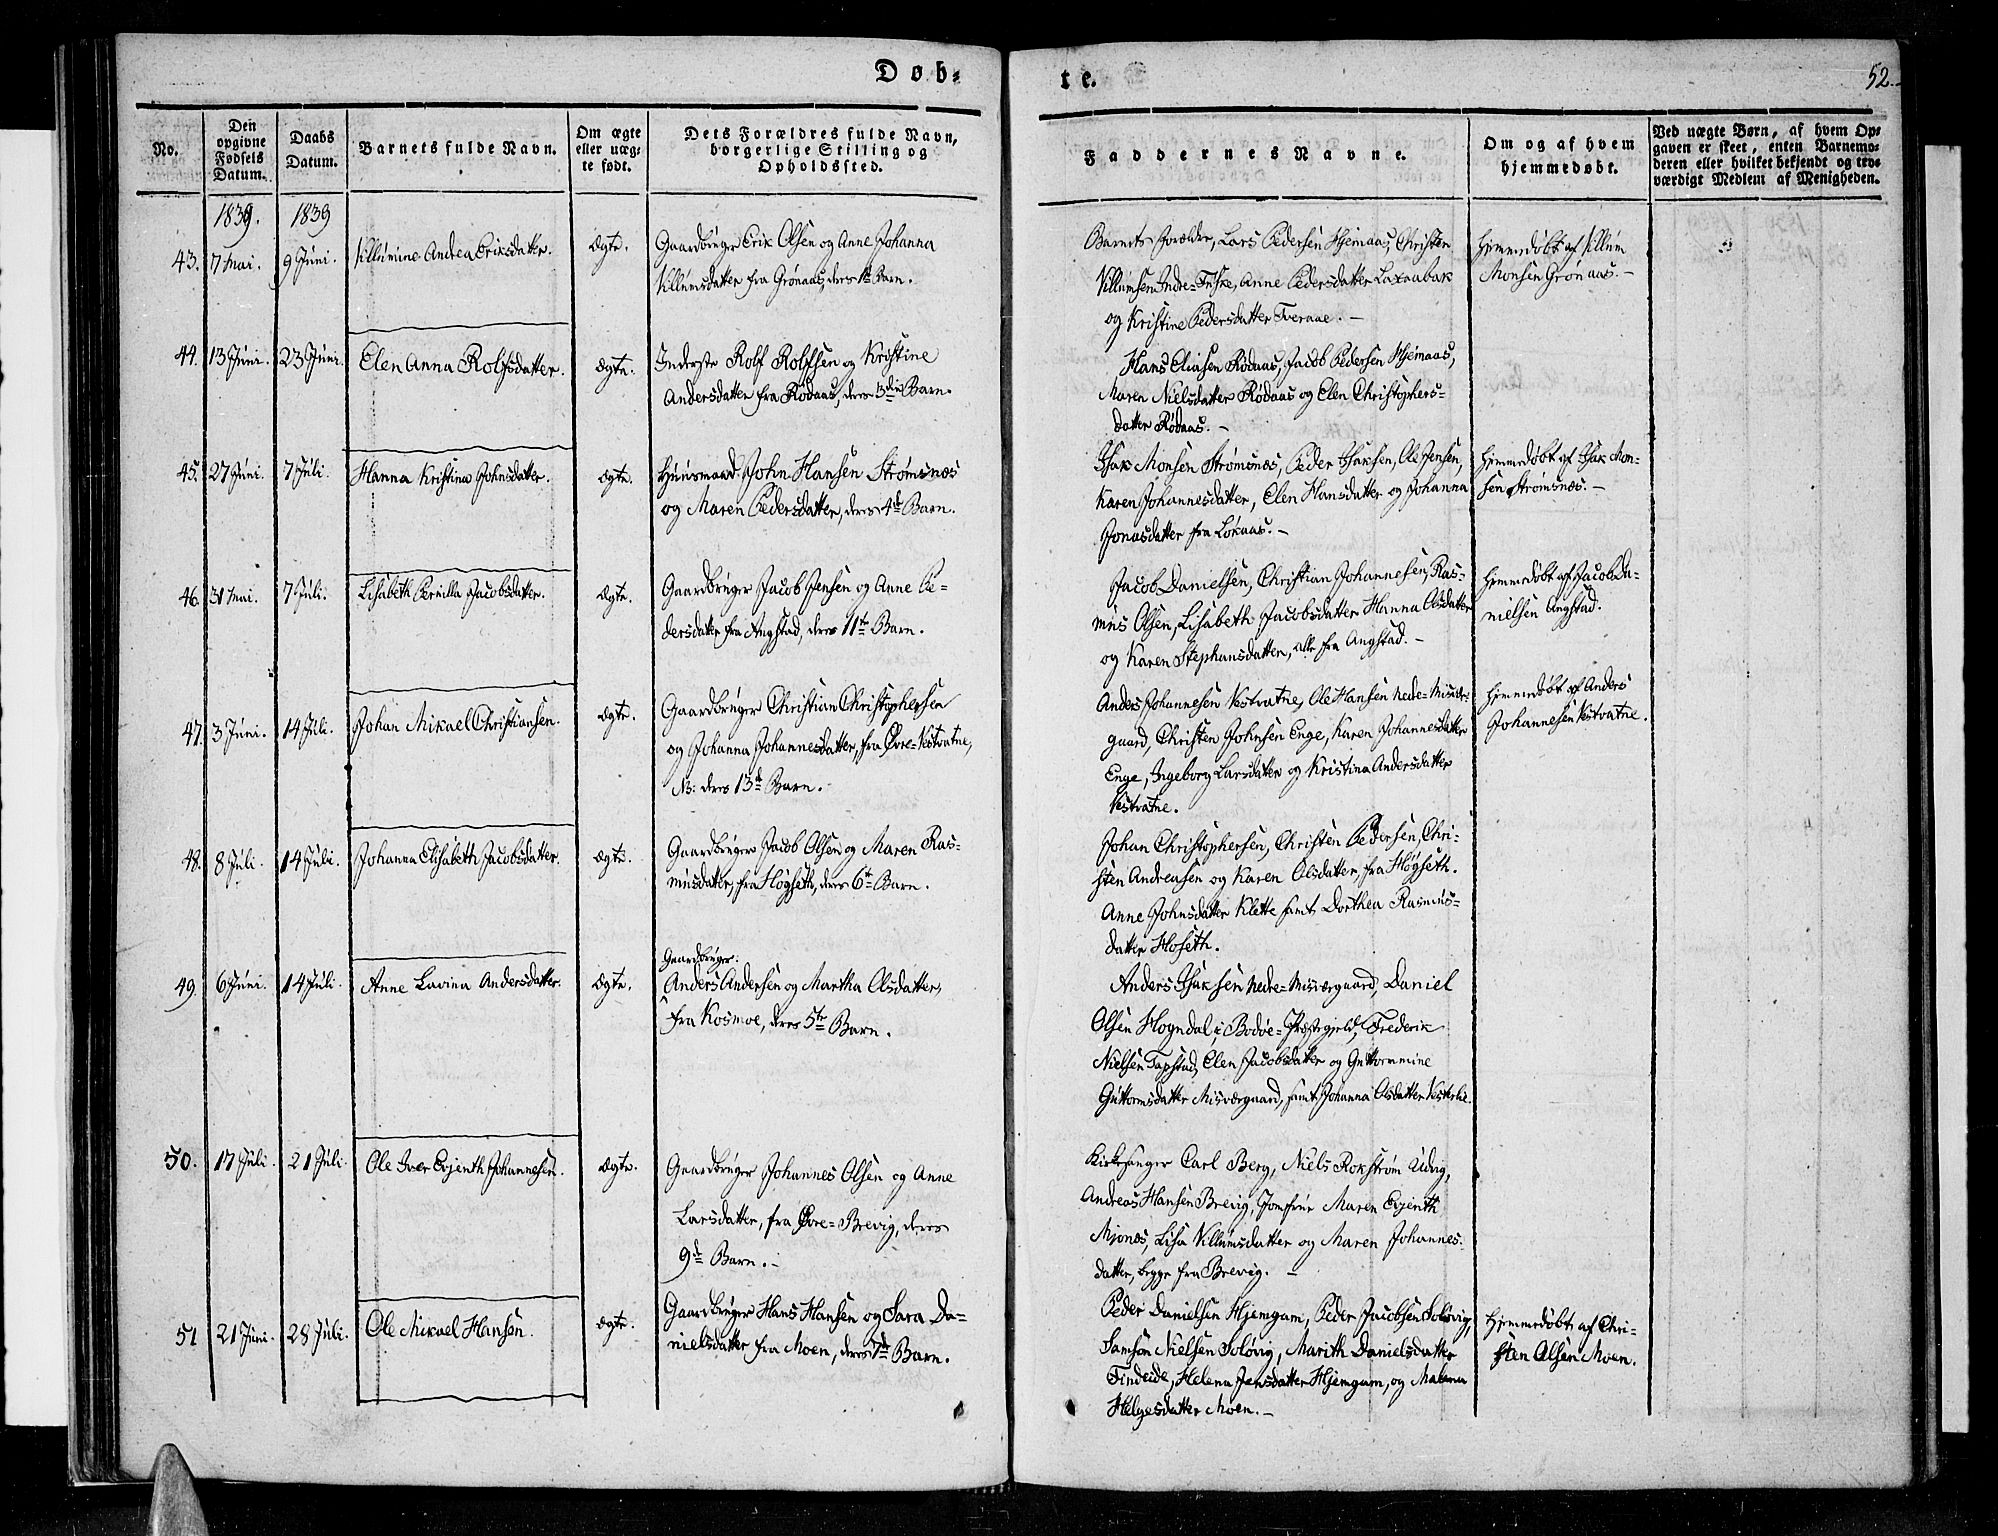 Døb-
te.
52.
No.
Den
opgivne
Fødsels
Datum.
Daabs
Datum.
Barnets fulde Navn.
Om ægte
eller uæg-
te født.
Dets Forældres fulde Navn,
borgerlige Stilling og
Opholdssted.
Faddernes Navne.
Om og af hvem
hjemmedøbt.
Ved uægte Børn, af hvem Op-
gaven er skeet, enten Barnemo-
deren eller hvilket bekjendt og tro-
værdigt Medlem af Menigheden.
1839.
1839
43.
7 Mai.
9 Juni.
Villumine Andrea Eriksdatter.
Ægte.
Gaardbruger Erik Olsen og Anne Johanna
Villumsdatter fra Grønaas, deres 1ste Barn.
Barnets Forældre, Lars Pedersen Hjemaas, Christen
Villumsen Indre-Fiske, Anne Pedersdatter Laxaabak
og Kristine Pedersdatter Tveraae. -
Hjemmedøbt af Villum
Monsen Grønaas. -
44.
13 Juni.
23 Juni.
Elen Anna Rolfsdatter.
Ægte.
Inderste Rolf Rolfsen og Kristine
Andersdatter fra Rødaas, deres 3die Barn.
Hans Eliasen Rødaas, Jacob Pedersen Hjemaas,
Maren Nielsdatter Rødaas og Elen Christophers-
datter Rødaas. -
45.
27 Juni.
7 Juli.
Hanna Kristina Johnsdatter.
Ægte.
Huusmand John Hansen Strømsnæs
og Maren Pedersdatter, deres 4de Barn.
Isak Monsen Strømsnæs, Peder Isaksen, Ole Jensen,
Karen Johannesdatter, Elen Hansdatter og Johanna
Jonasdatter fra Løkaas. -
Hjemmedøbt af Isak Mon-
sen Strømsnæs. -
46.
31 Mai.
7 Juli.
Lisabeth Pernilla Jacobsdatter.
Ægte.
Gaardbruger Jacob Jensen og Anne Pe-
dersdatter fra Angstad, deres 11te Barn.
Jacob Danielsen, Christian Johannesen, Ras-
mus Olsen, Lisabeth Jacobsdatter Hanna Olsdatter
og Karen Stephansdatter, alle fra Angstad. -
Hjemmedøbt af Jacob Da-
nielsen Angstad.
47.
3 Juni.
14 Juli.
Johan Mikael Christiansen.
Ægte.
Gaardbruger Christian Christophersen
og Johanna Johannesdatter, fra Øvre-Vestvatne,
N: deres 13de Barn.
Anders Johannesen Vestvatne, Ole Hansen Nedre-Misvær-
gaard, Christen Johnsen Enge, Karen Johannesdatter
Enge, Ingeborg Larsdatter og Kristina Andersdatter
Vestvatne.
Hjemmedøbt af Anders
Johannesen Vestvatne.
48.
8 Juli.
14 Juli.
Johanna Elisabeth Jacobsdatter.
Ægte.
Gaardbruger Jacob Olsen og Maren Ras-
musdatter, fra Høgseth, deres 6te Barn.
Johan Christophersen, Christen Pedersen, Chri-
sten Andreasen og Karen Olsdatter, fra Høgseth.
Anne Johnsdatter Klette samt Dorthea Rasmus-
datter Hoseth.
49.
6 Juni.
14 Juli.
Anne Lavina Andersdatter.
Ægte.
Gaardbruger.
Anders Andersen og Martha Olsdatter,
fra Kosmoe, deres 5te Barn.
Anders Isaksen Nedre-Misværgaard, Daniel
Olsen Hogndal i Bodøe-Præstegjeld, Frederik
Nielsen Tapstad, Elen Jacobsdatter og Guttormine
Guttormsdatter Misværgaard, samt Johanna Olsdatter Vesterlie.
50.
17 Juli.
21 Juli.
Ole Iver Evjenth Johannesen.
Ægte.
Gaardbruger Johannes Olsen og Anne
Larsdatter, fra Øvre-Brevig, deres
9de Barn. -
Kirkesanger Carl Berg, Niels Rokstrøm Udvig,
Andreas Hansen Brevig, Jomfrue Maren Evjenth
Mjonæs, Lisa Villumsdatter og Maren Johannes-
datter, begge fra Brevig. -
51
21 Juni.
28 Juli.
Ole Mikael Hansen.
Ægte.
Gaardbruger Hans Hansen og Sara Da-
nielsdatter fra Moen, deres 7de Barn.
Peder Danielsen Hjemgam, Peder Jacobsen Soløvig,
Samson Nielsen Soløvig, Marith Danielsdatter
Tindeide, Helena Jensdatter Hjemgam, og Malena
Helgesdatter Moen. -
Hjemmedøbt af Chri-
sten Olsen Moen.